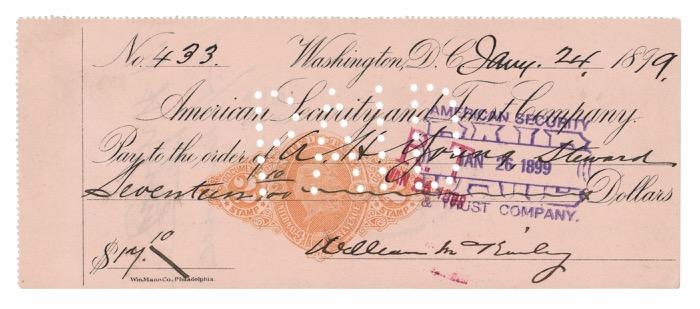 No. 433 Washington, D.C. Jany. 24, 1899.
American Security and Trust Company.
Pay to the order of A. H. Young, Steward
Seventeen 10/100 Dollars
$17.10 William McKinley
Wm. Mann Co., Philadelphia.
AMERICAN SECURITY
PAID
JAN 26 1899
& TRUST COMPANY.
PAID
STAMP STAMP